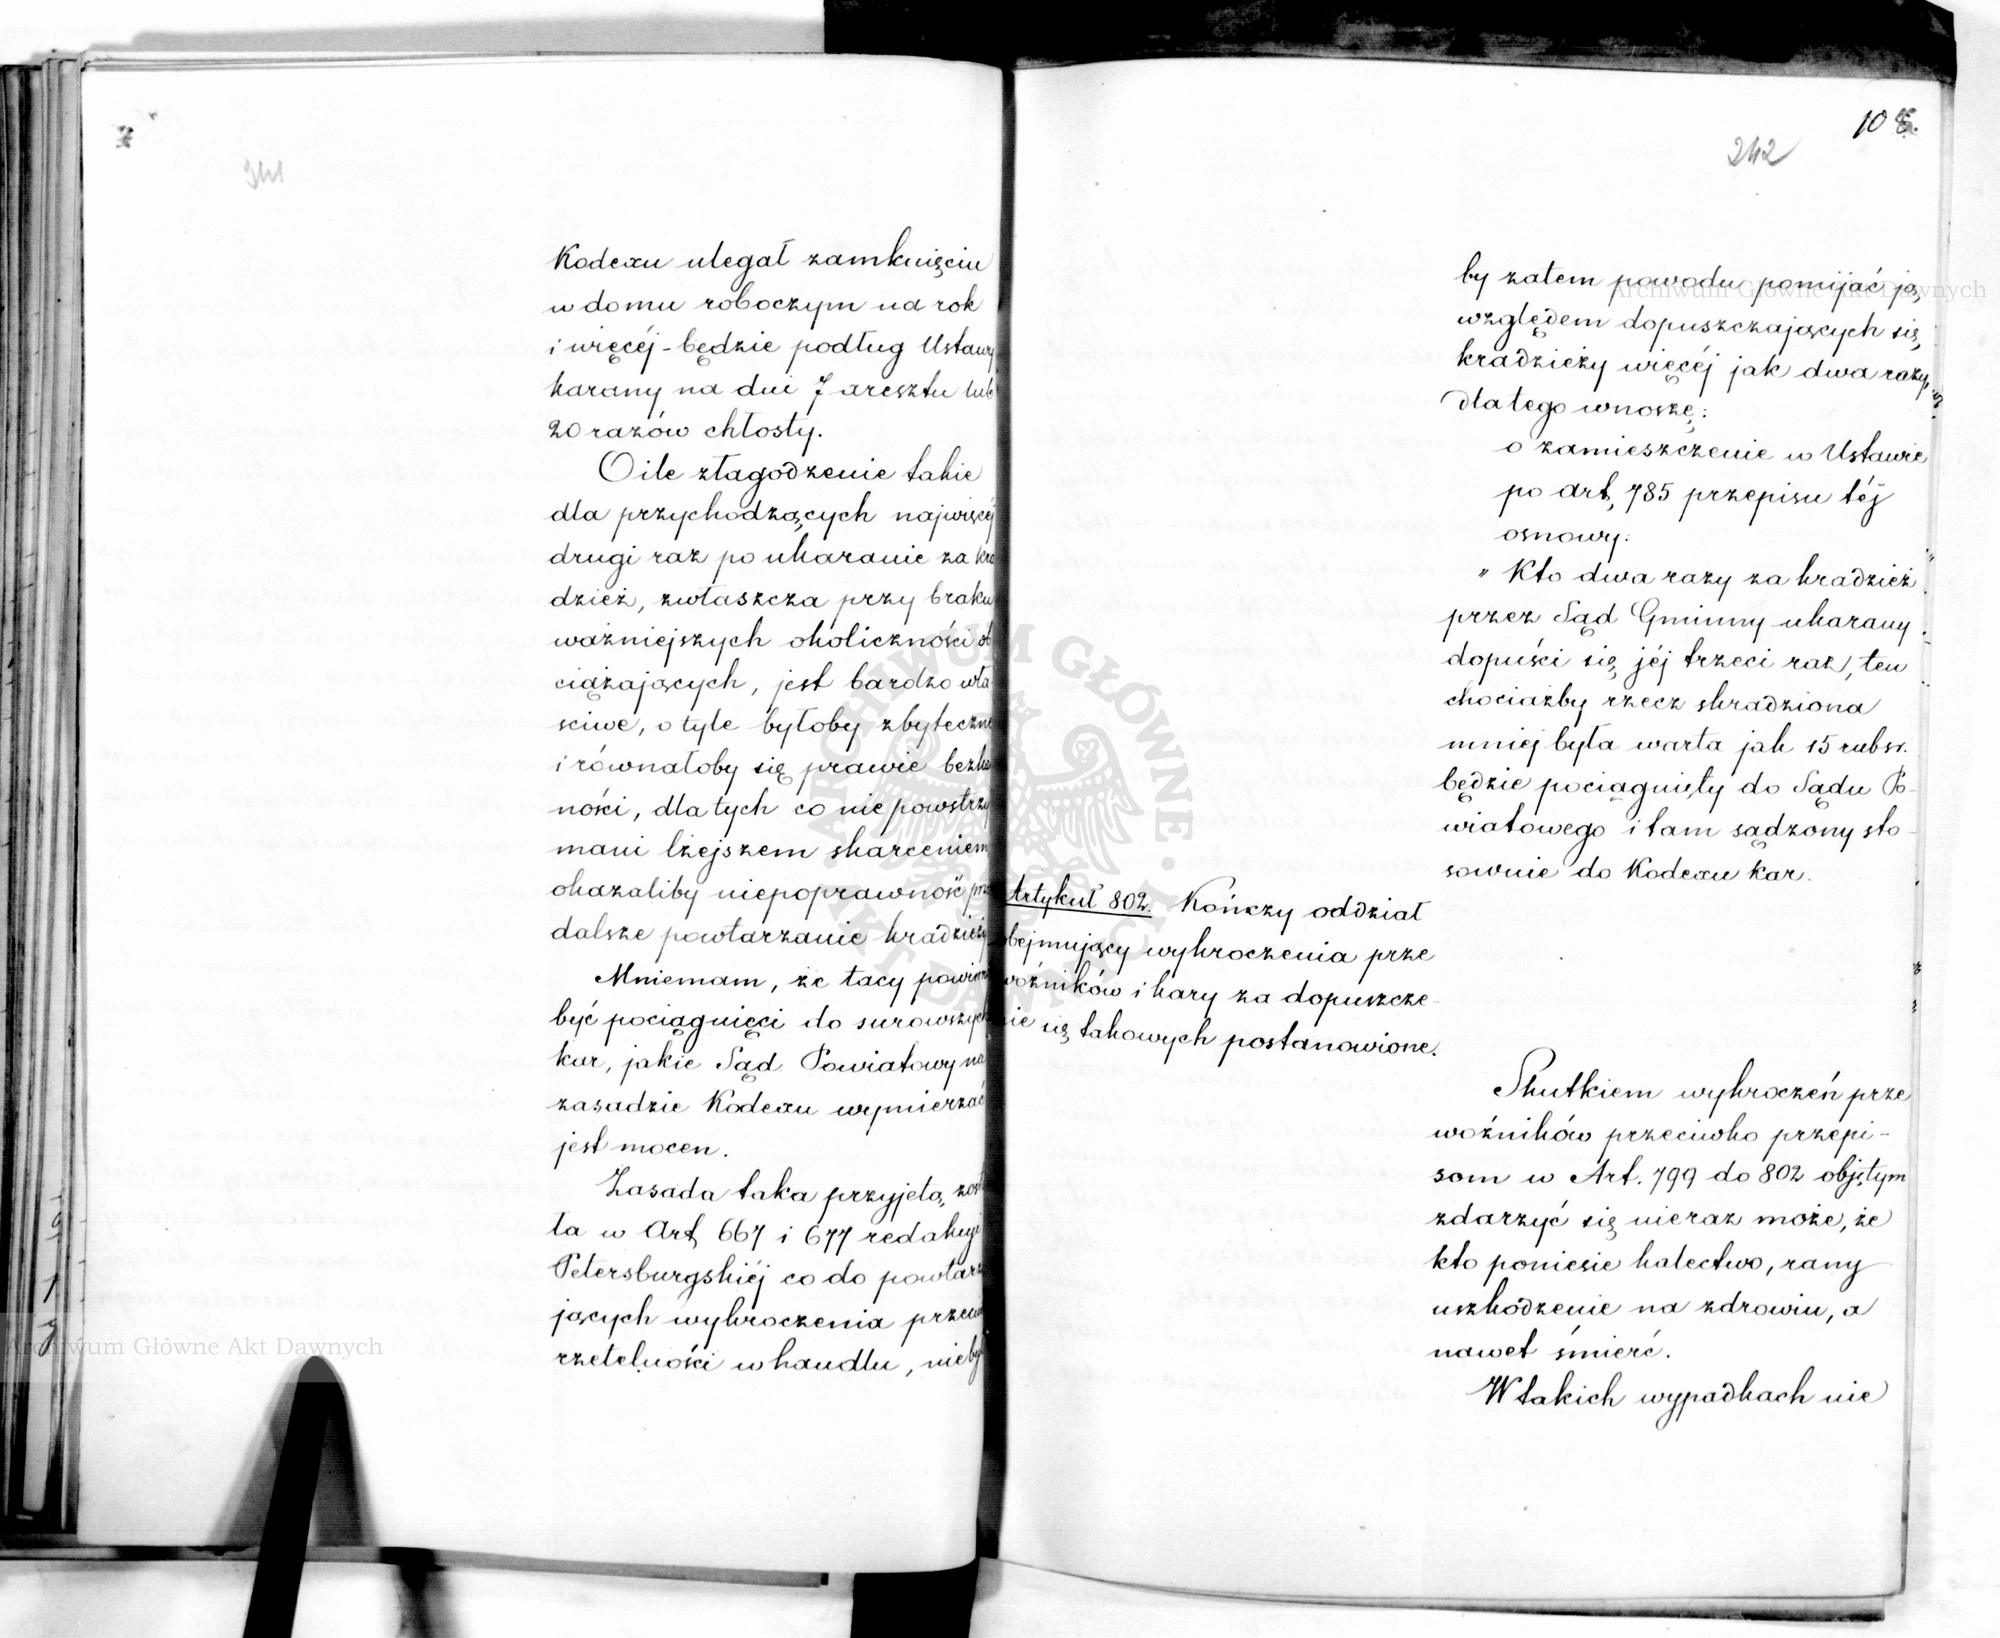 241
Kodexu ulegał zamknięciu
w domu roboczym na rok
i więcéj - będzie podług Ustawy
karany na dni 7 aresztu lub
20 razów chłosty.
O ile złagodzenie takie
dla przychodzących najwięcéj
drugi raz po ukaranie za kra
dzież, zwłaszcza przy braku
ważniejszych okoliczności ob
ciążających, jest bardzo wła
ściwe, o tyle byłoby zbyteczne
i równałoby się prawie bezka
ności, dla tych co nie powstrzy
mani lżejszem skarceniem
okazaliby niepoprawność prze
dalsze powtarzanie kradzieży
Mniemam, że tacy powinni
być pociągnięci do surowszych
kar, jakie Sąd Powiatowy na
zasadzie Kodexu wymierzać
jest mocen.
Zasada taka przyjętą, zost
ła w Art. 667 i 677 redakcyi
Petersburgskiéj co do powtarz
jących wykroczenia przeciw
rzetelności w handlu, nie był
242
by zatem powodu pomijać ją,
względem dopuszczających się
kradzieży więcéj jak dwa razy,
dla tego wnoszę:
o zamieszczenie w Ustawie
po art. 785 przepisu téj
osnowy:
" Kto dwa razy za kradzież
przez Sąd Gminny ukarany
dopuści się jéj trzeci raz, ten
chociażby rzecz skradziona
mniej była warta jak 15 rubsr.
będzie pociągnięty do Sądu Po-
wiatowego i tam sądzony sto-
sownie do Kodexu kar.
Artykuł 802. Kończy oddział
obejmujący wykroczenia prze
woźników i kary za dopuszcze-
nie się takowych postanowione.
Skutkiem wykroczeń prze
woźników przeciwko przepi-
som w Art. 799 do 802 objętym
zdarzyć się nieraz może, że
kto poniesie kalectwo, rany
uszkodzenie na zdrowiu, a
nawet śmierć.
W takich wypadkach nie
Archiwum Główne Akt Dawnych
Archiwum Główne Akt Dawnych
ARCHIWUM GŁÓWNE AKT DAWNYCH